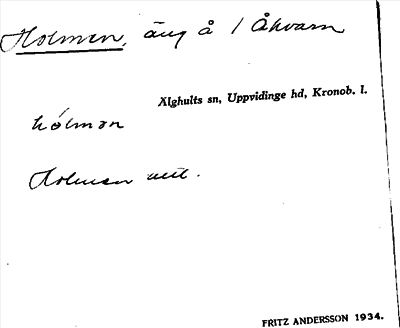 Holmen, äng å 1 Åkvarn
Älghults sn, Uppvidinge hd, Kronob. l.
hólmən
Holmen utt.
FRITZ ANDERSSON 1934.